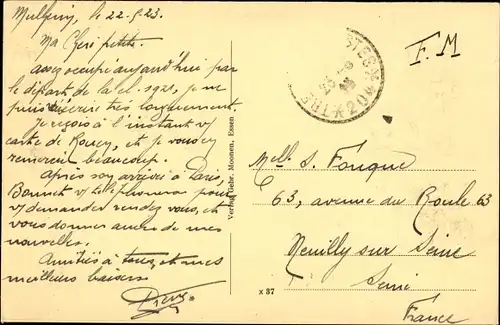 Mulheim, le 22-5-23.
Ma Chérie petite.
Assez occupé aujourd'hui par
le départ de la cl. 1921, je ne
puis écrire très longuement.
Je reçois à l'instant v/
carte de Rouen, et je vous en
remercie beaucoup.
Après son arrivée à Paris,
Bonnet v/ téléphonera pour
v/ demander rendez vous, et
vous donner aussi de mes
nouvelles.
Amitiés à tous, et mes
meilleurs baisers
Verlag Gebr. Moonen, Essen
x 37
F.M
Melle S. Fouque
63, avenue du Roule 63
Neuilly sur Seine
Seine
France